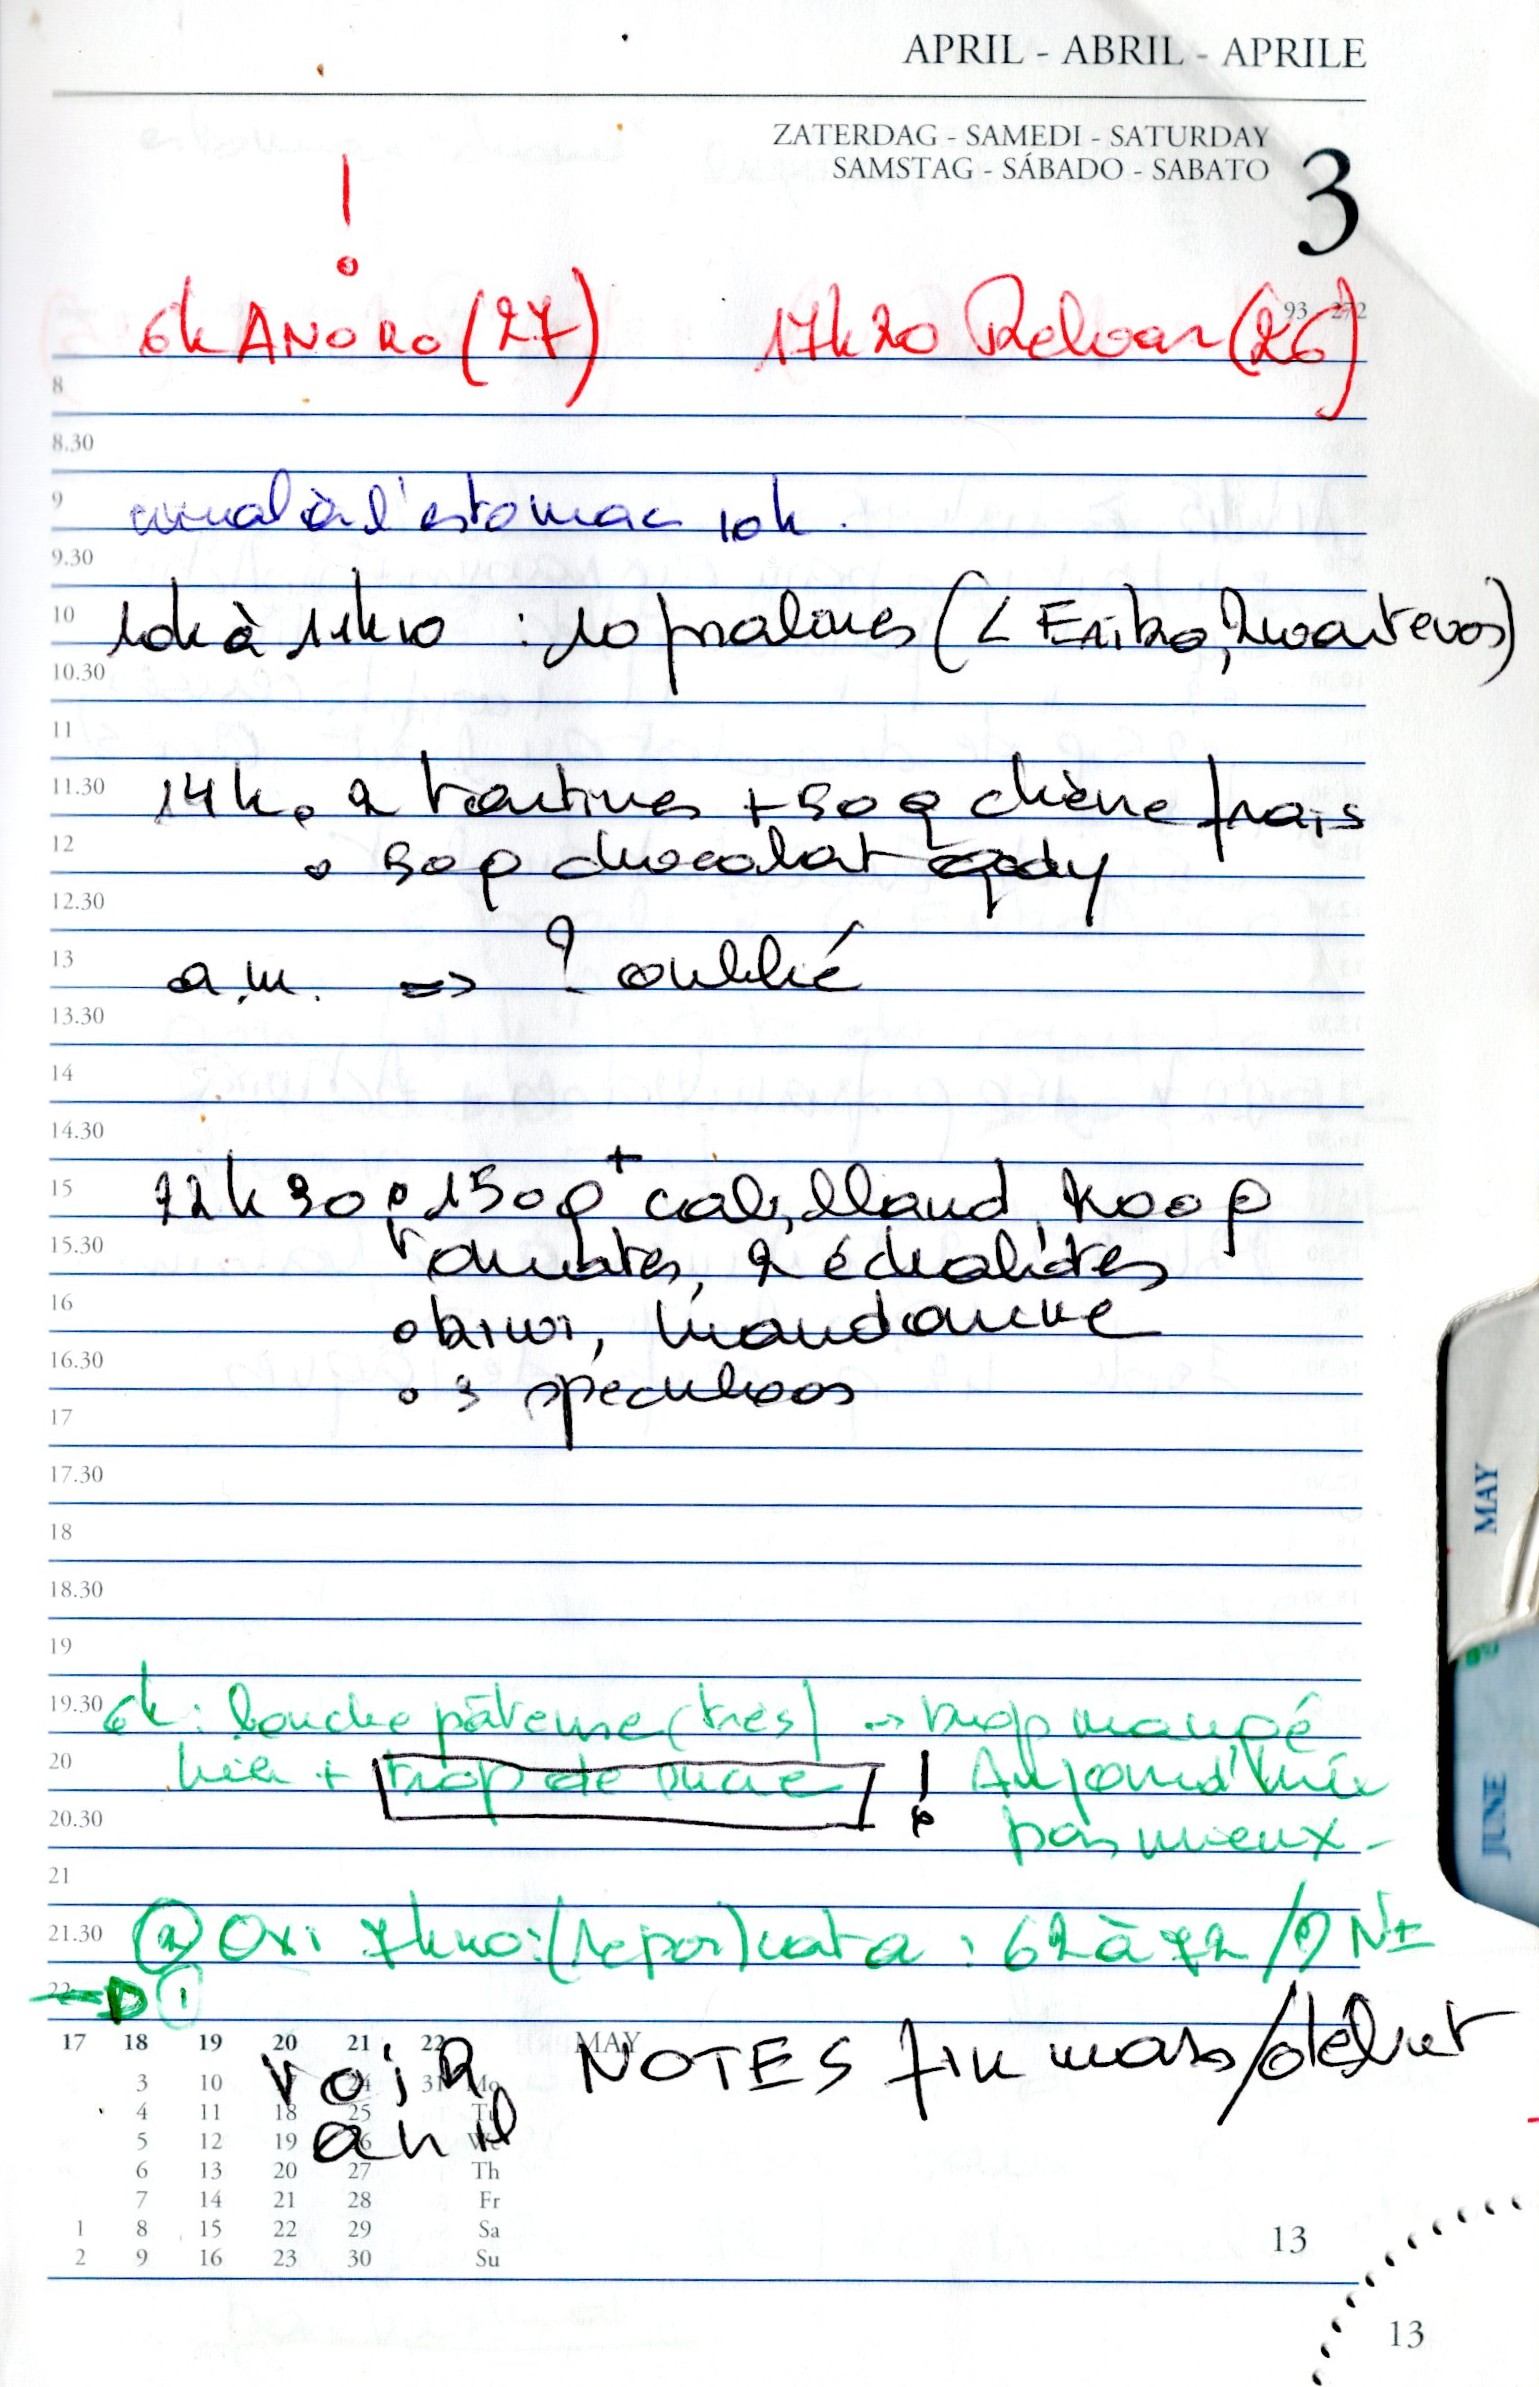 APRIL - ABRIL - APRILE
ZATERDAG - SAMEDI - SATURDAY
SAMSTAG - SÁBADO - SABATO
3
93 272
!
6h ANORO (27) 17h20 (26)
8
8.30
9 mal à l'estomac 10h.
9.30
10 10h à 11h10 : 10 pralines (<
10.30
11
11.30 14h. 2 tartines + 50 g chèvre frais
12 50 g chocolat
12.30
13 a.m. => ? oublié
13.30
14
14.30
15 22h30 150 g + cabillaud,
15.30 tomates, 2 échalotes
16 kiwi, mandarine
16.30 3 speculoos
17
17.30
18
18.30
19
19.30 6h : bouche pâteuse (très) -> trop mangé
20 hier + trop de sucre ! Aujourd'hui
20.30 pas mieux -
21
21.30 (2) Oxi (repos) : 62 à 72 /
22 (1)
17 18 19 20 21 22 MAY
voir NOTES fin mars/début
avril
3 10 17 24 31 Mo
4 11 18 25 Tu
5 12 19 26 We
6 13 20 27 Th
7 14 21 28 Fr
1 8 15 22 29 Sa
2 9 16 23 30 Su
13
13
MAY
JUNE